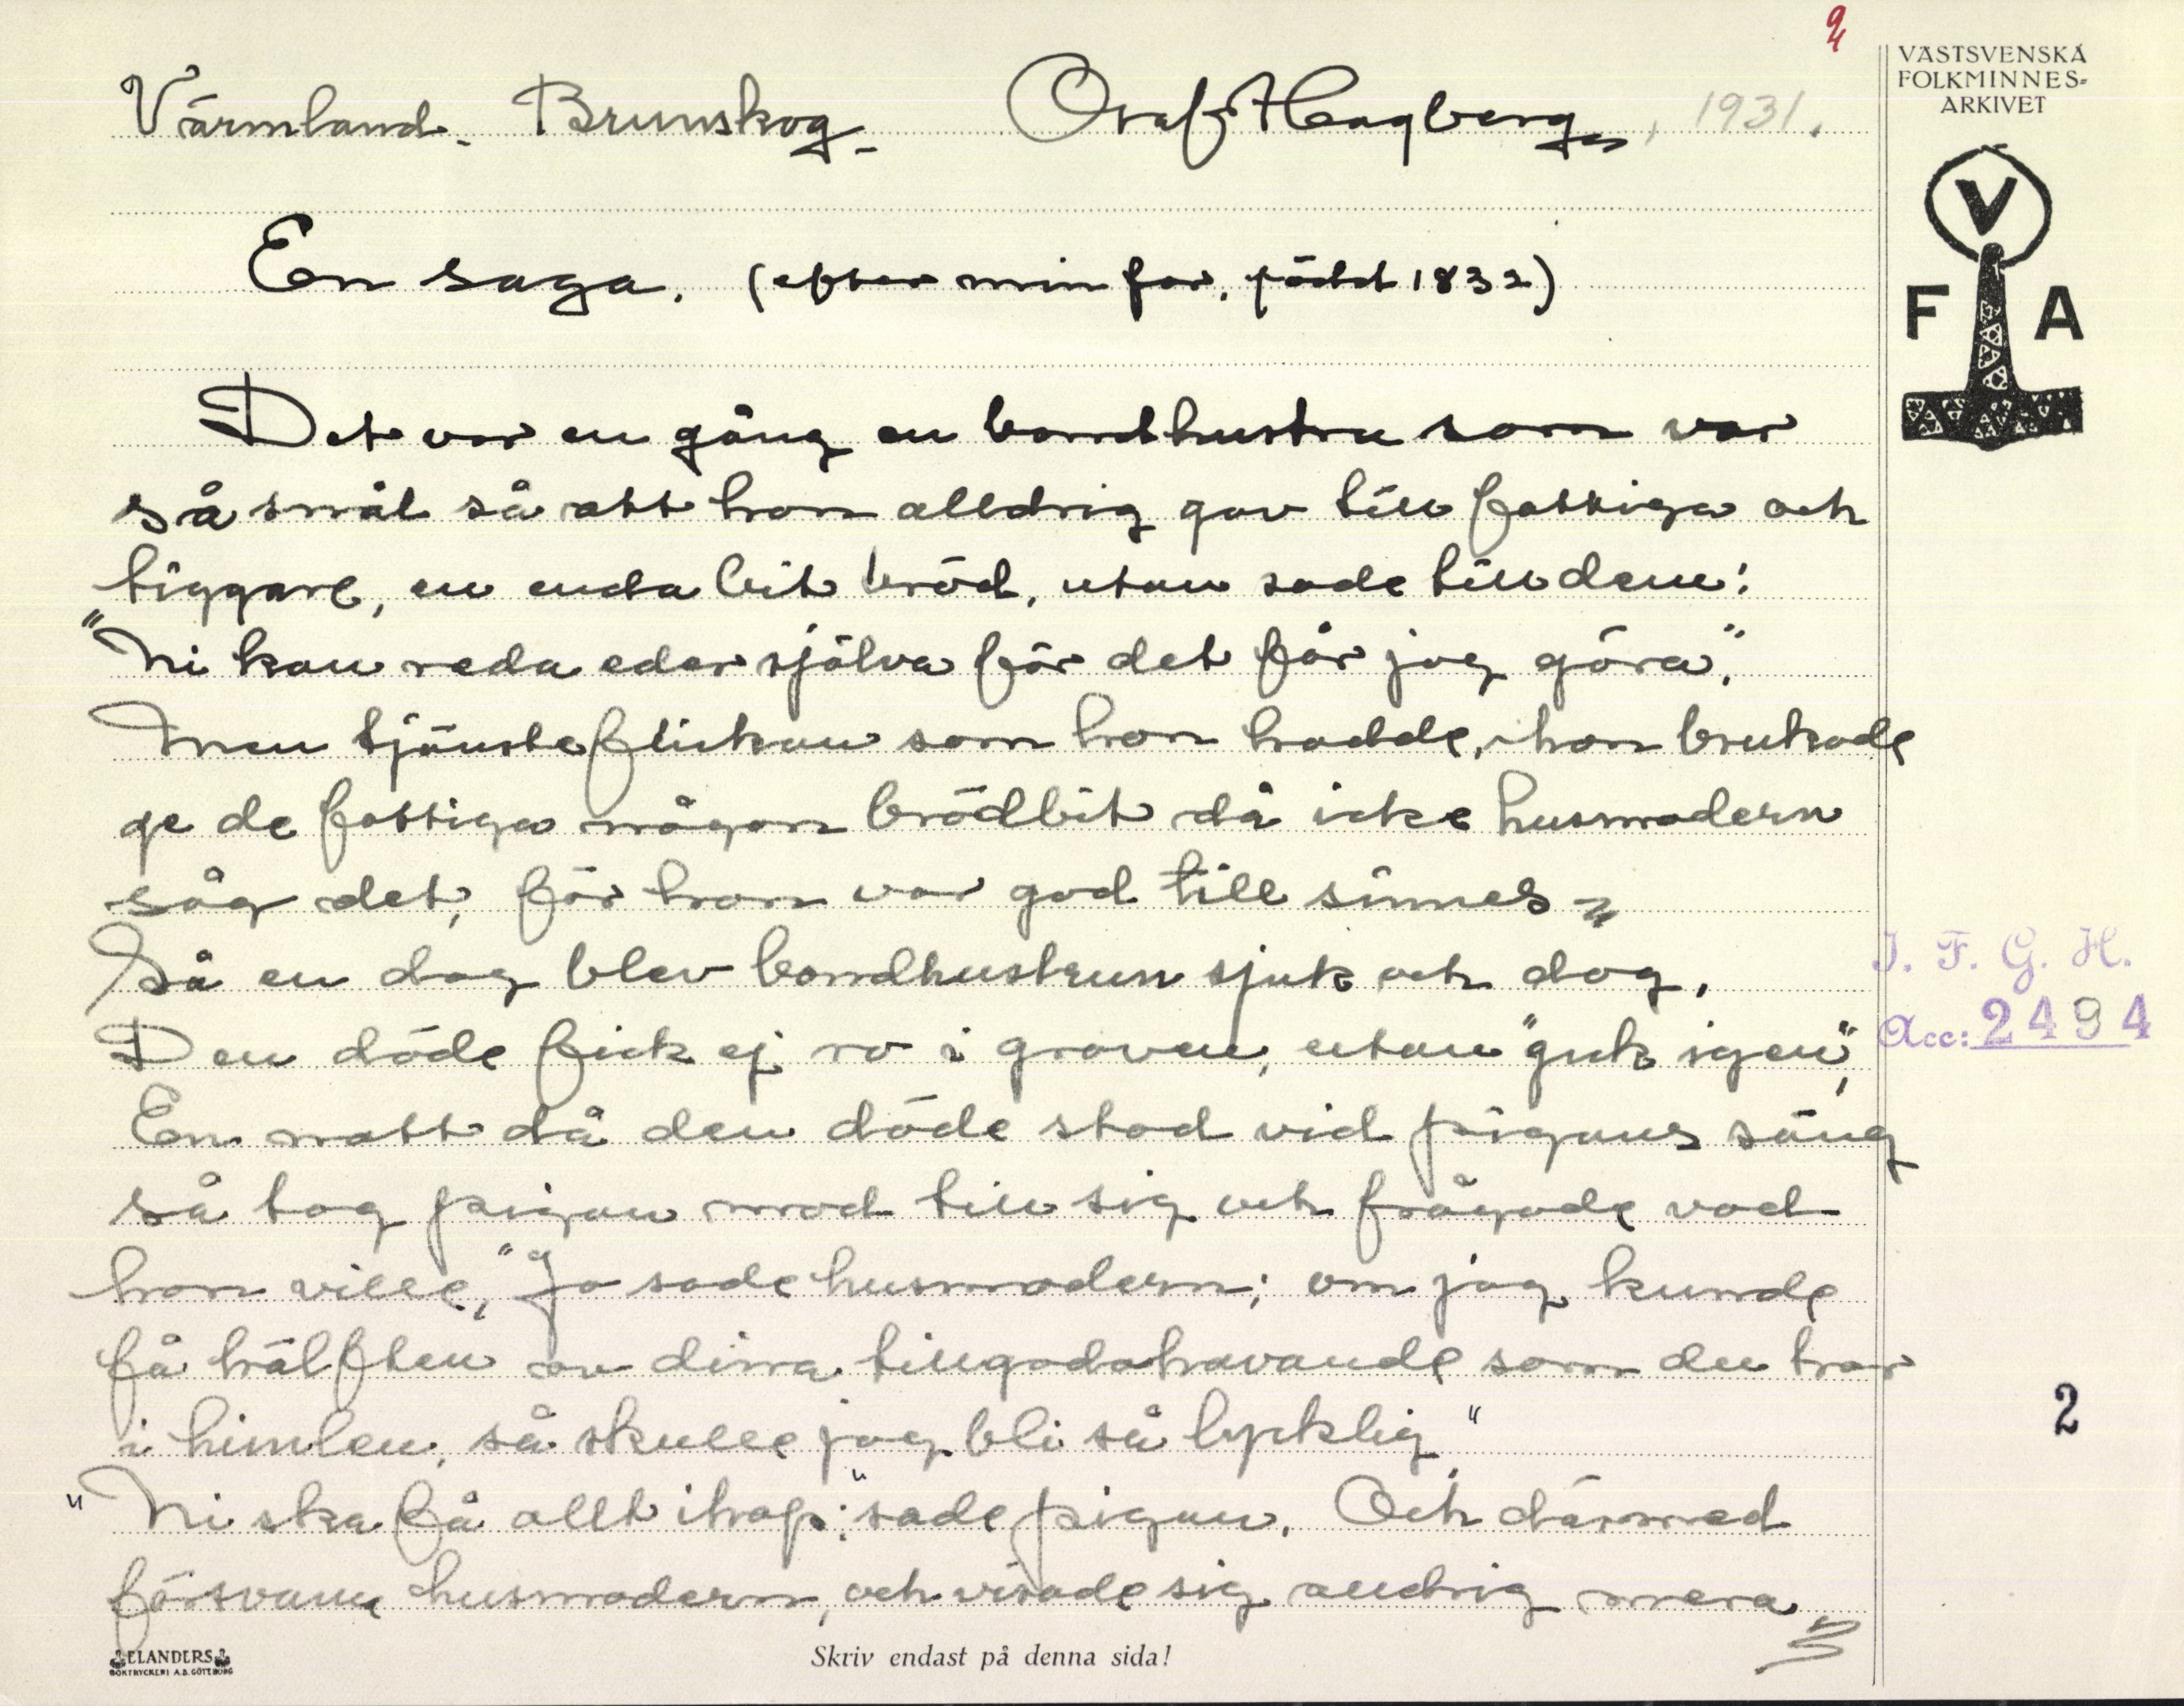 9/4
VÄSTSVENSKA
FOLKMINNES-
ARKIVET
Värmland. Brunskog. Olaf Hagberg, 1931.
V
F A
En saga. (efter min far, född 1832)
Det var en gång en bondhustru som var
så snål så att hon alldrig gav till fattiga och
tiggare, en enda bit bröd, utan sade till dem:
"Ni kan reda eder själva för det får jag göra".
Men tjänsteflickan som hon hadde, hon brukade
ge de fattiga någon brödbit då icke husmodern
såg det, för hon var god till sinnes
Så en dag blev bondhustrun sjuk och dog.
Den döde fick ej ro i graven, utan "gick igen",
En natt då den döde stod vid pigans säng
så tog pigan mod till sig och frågade vad
hon ville, "Jo sade husmodern; om jag kunde
få hälften av dina tillgodohavande som du har
i himlen, så skulle jag bli så lycklig."
"Ni ska få allt ihop:" sade pigan. Och därmed
försvann husmodern, och visade sig alldrig mera
I. F. G. H.
Acc: 2494
2
ELANDERS
BOKTRYCKERI A.B. GÖTEBORG
Skriv endast på denna sida!